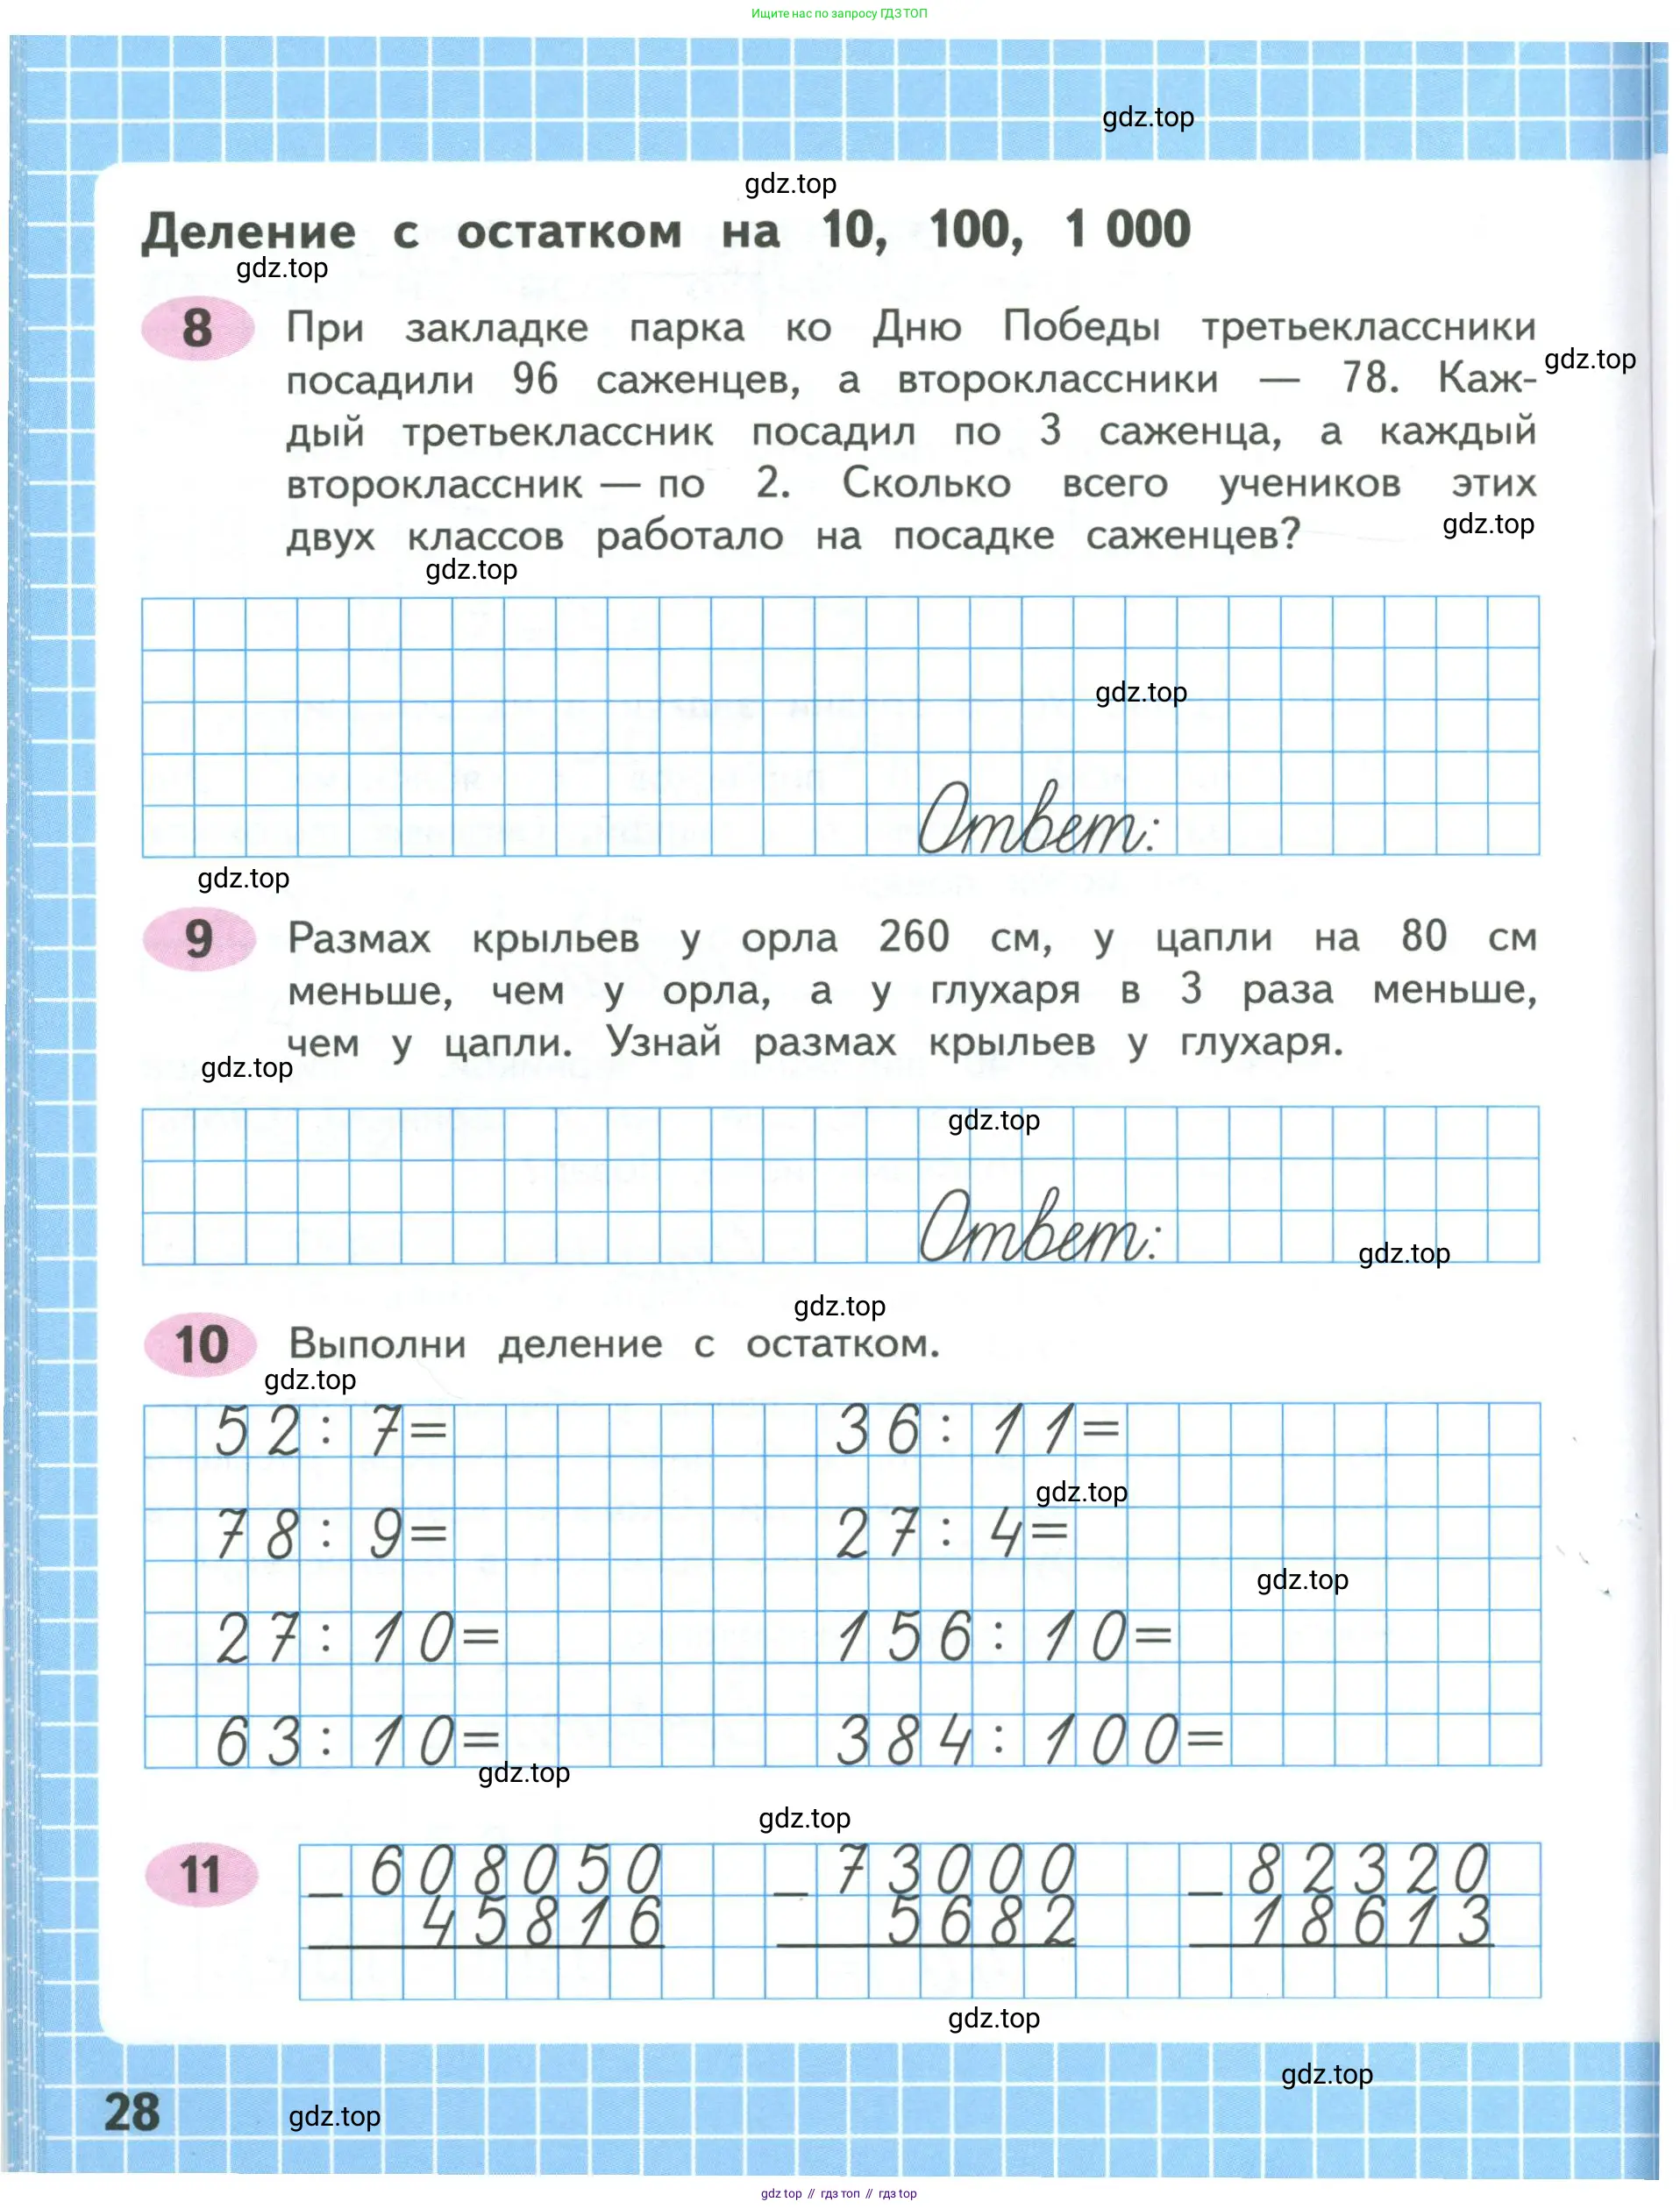 Ищите нас по запросу ГДЗ ТОП
gdz.top
gdz.top
Деление с остатком на 10, 100, 1 000
gdz.top
8 При закладке парка ко Дню Победы третьеклассники
gdz.top
посадили 96 саженцев, а второклассники — 78. Каж-
дый третьеклассник посадил по 3 саженца, а каждый
второклассник — по 2. Сколько всего учеников этих
gdz.top
двух классов работало на посадке саженцев?
gdz.top
gdz.top
Ответ:
gdz.top
9 Размах крыльев у орла 260 см, у цапли на 80 см
меньше, чем у орла, а у глухаря в 3 раза меньше,
чем у цапли. Узнай размах крыльев у глухаря.
gdz.top
gdz.top
Ответ:
gdz.top
gdz.top
10 Выполни деление с остатком.
gdz.top
52: 7= 36: 11=
gdz.top
78: 9= 27: 4=
gdz.top
27: 10= 156: 10=
63: 10= 384: 100=
gdz.top
gdz.top
11 _ 608050 _ 73000 _ 82320
45816 5682 18613
gdz.top
gdz.top
28
gdz.top
gdz top // гдз топ // гдз top